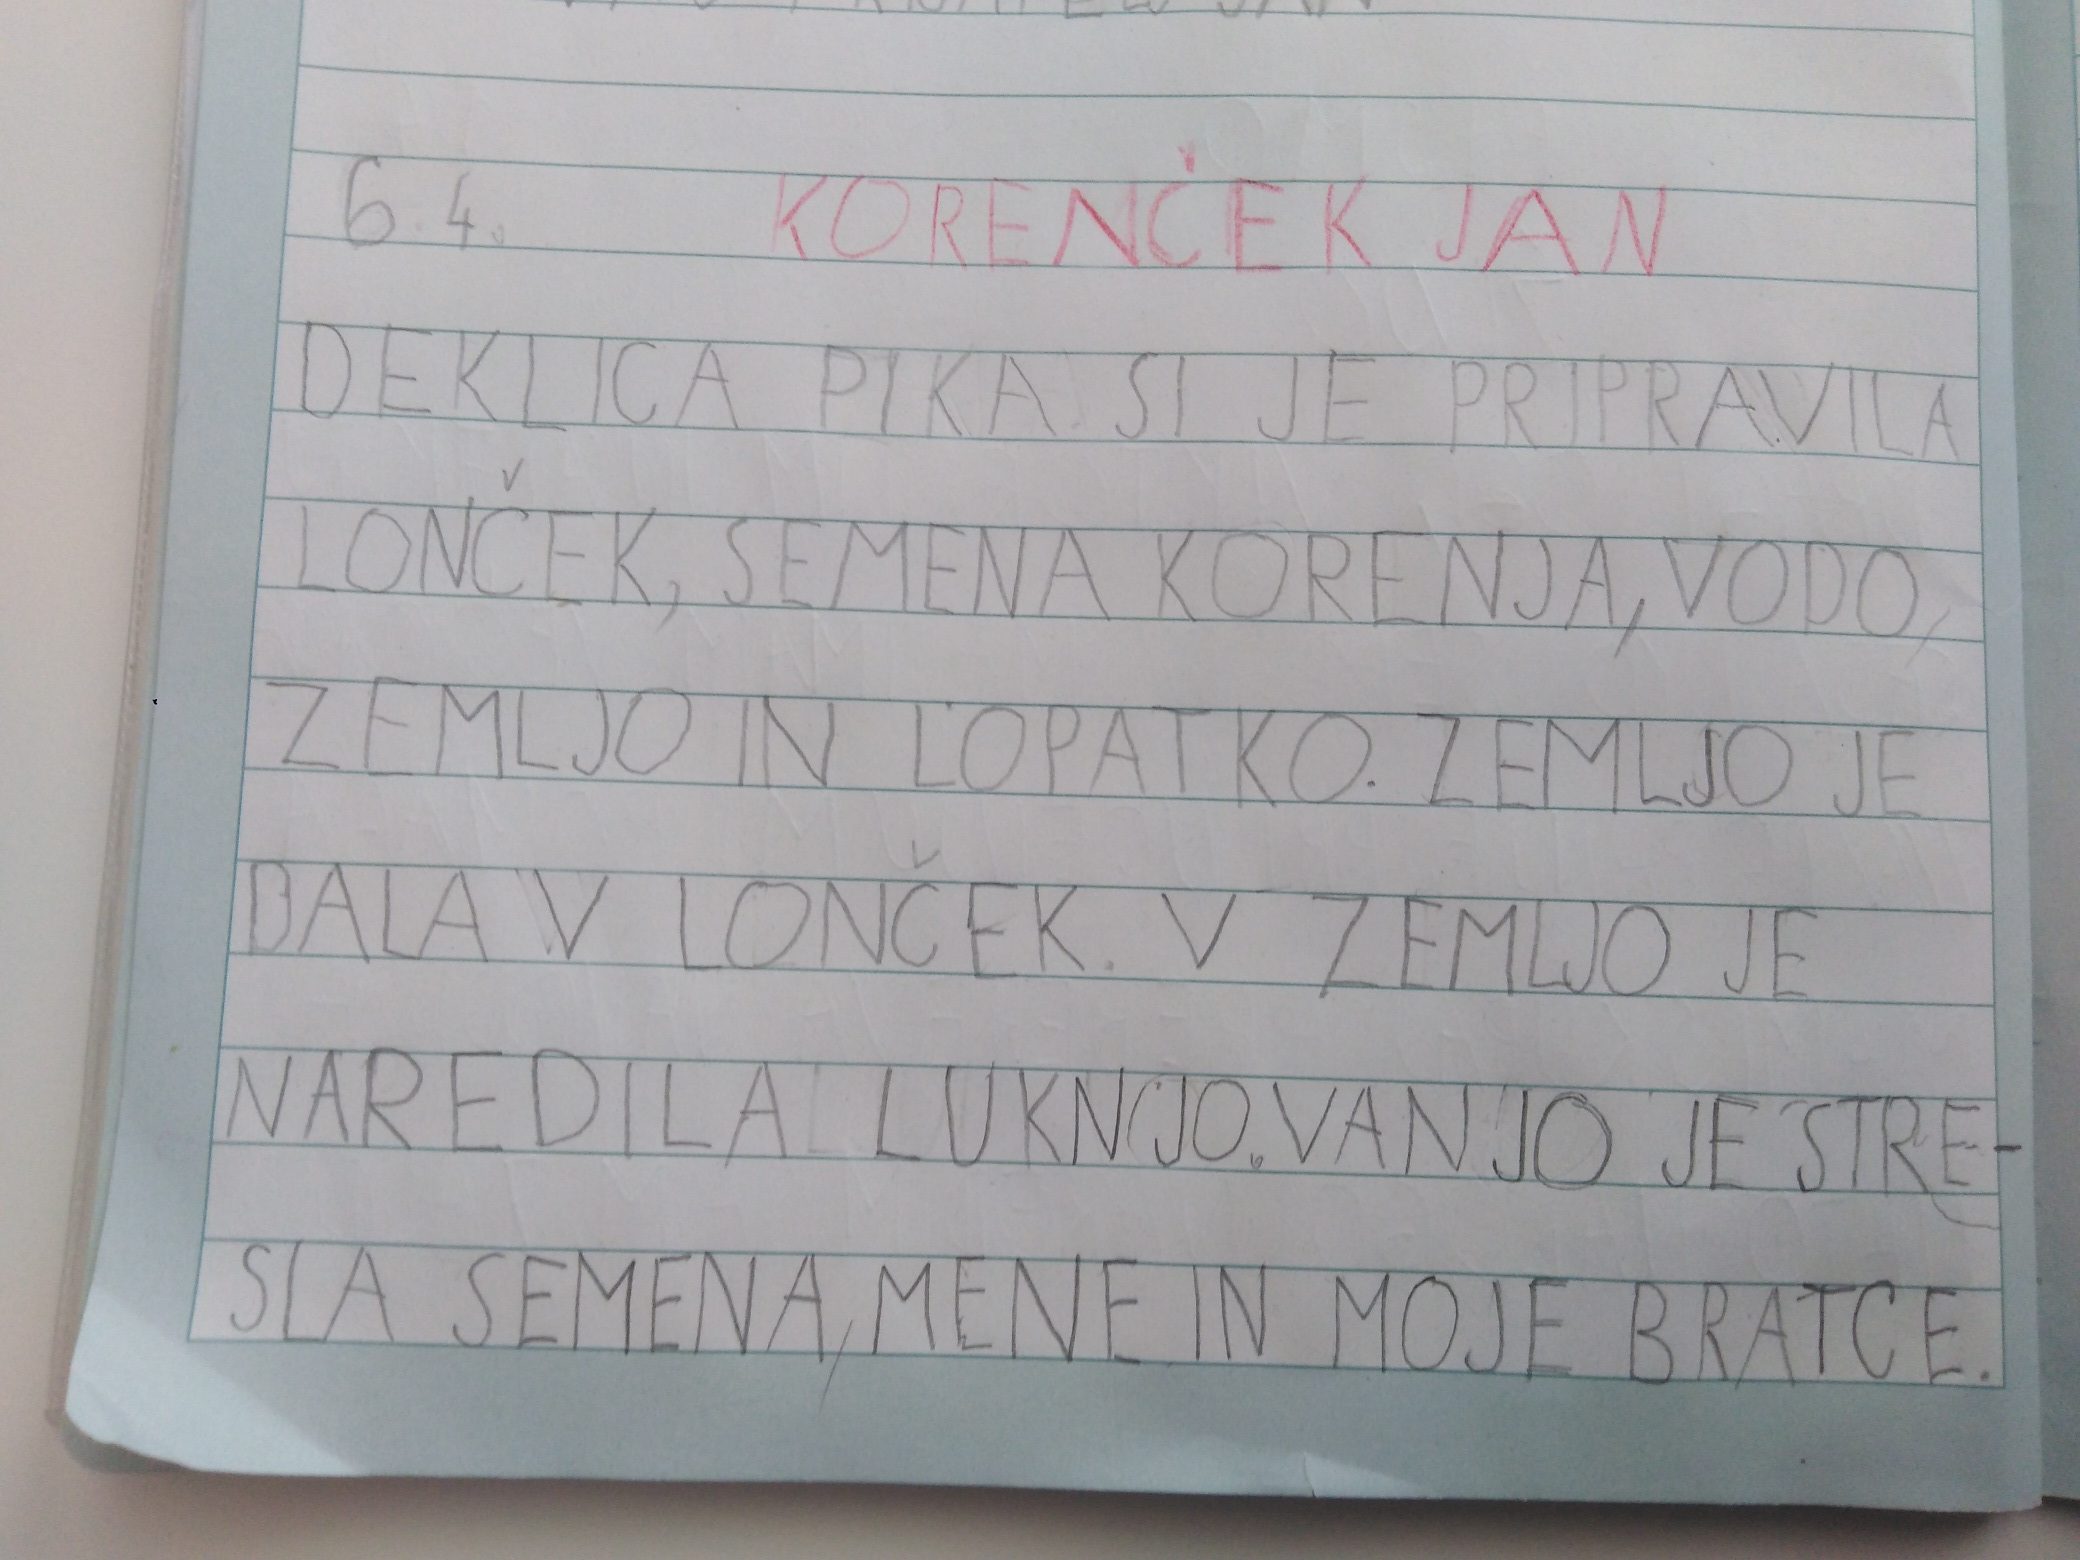 JAN
6.4. KORENČEK JAN
DEKLICA PIKA SI JE PRIPRAVILA
LONČEK, SEMENA KORENJA, VODO,
ZEMLJO IN LOPATKO. ZEMLJO JE
DALA V LONČEK. V ZEMLJO JE
NAREDILA LUKNJO. VANJO JE STRE-
SLA SEMENA, MENE IN MOJE BRATCE.